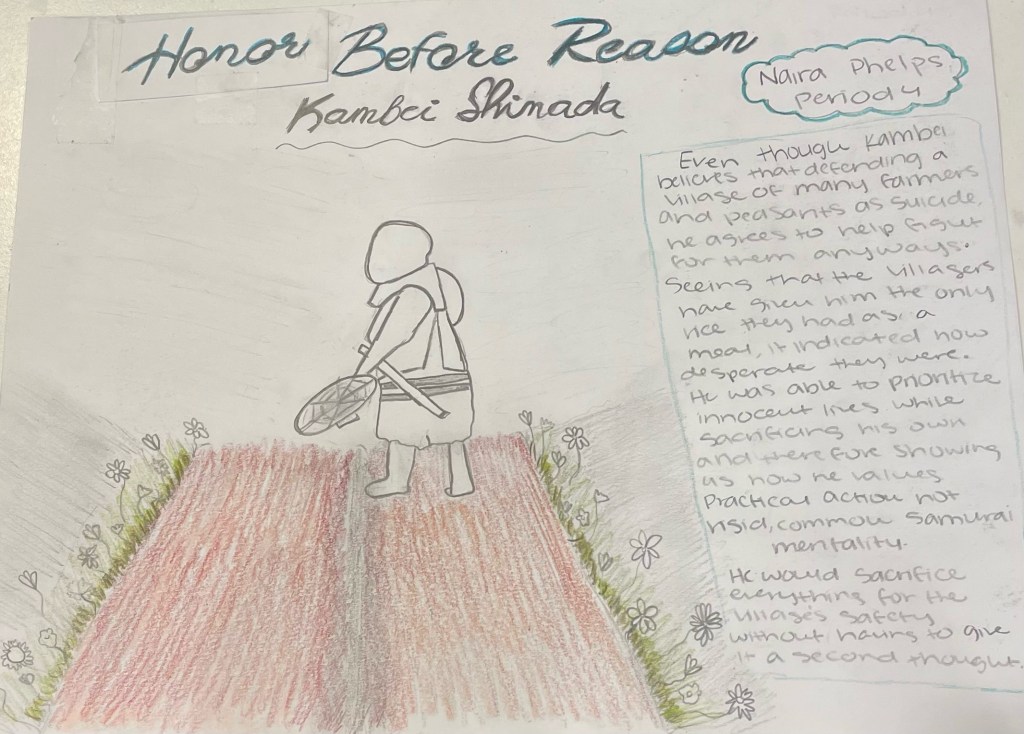 Honor Before Reason
Kambei Shimada
Naira Phelps
Period 4
Even though Kambei
believes that defending a
village of many farmers
and peasants as suicide,
he agrees to help fight
for them anyways.
Seeing that the villagers
have given him the only
rice they had as a
meal, it indicated how
desperate they were.
He was able to prioritize
innocent lives while
sacrificing his own
and therefore showing
us how he values
practical action not
rigid, common samurai
mentality.
He would sacrifice
everything for the
village's safety
without having to give
it a second thought.